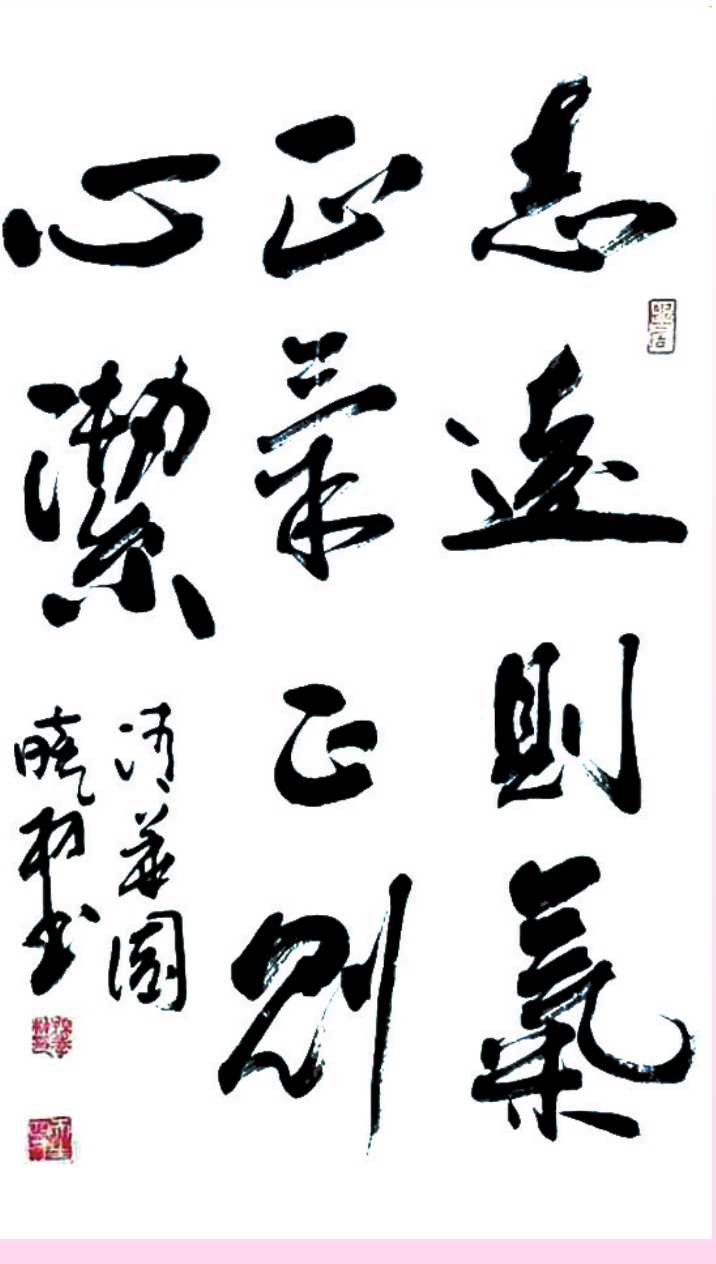 志遠則氣
正氣正則
心潔
清華園
曉林書